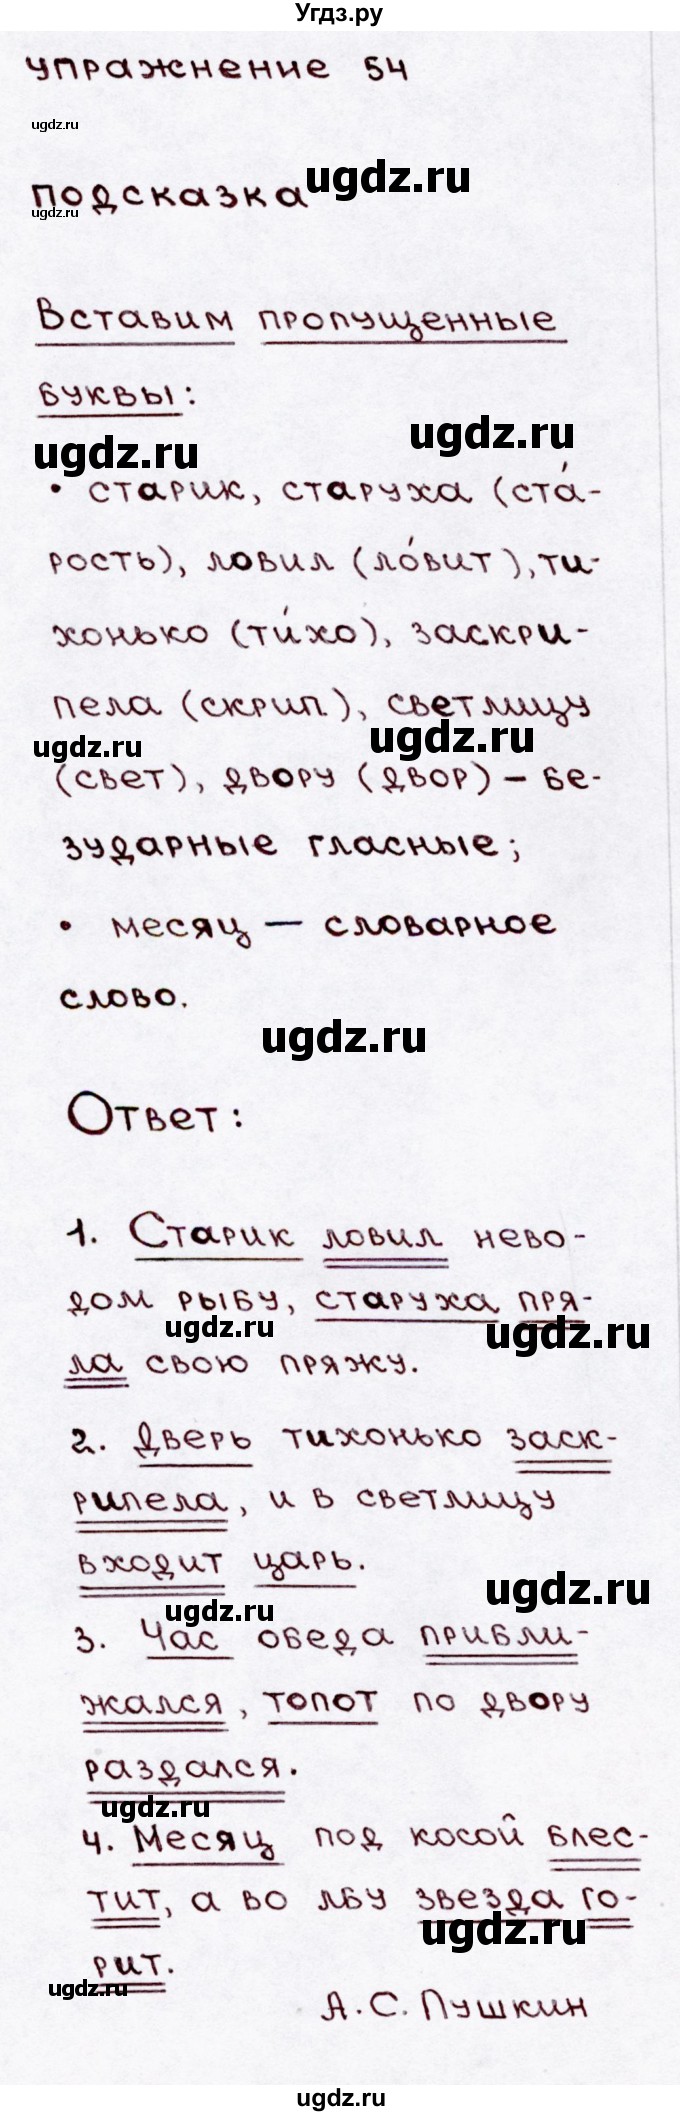 Угдз.ру
упражнение 54
ugdz.ru
подсказка ugdz.ru
ugdz.ru
Вставим пропущенные
буквы:
ugdz.ru
ugdz.ru
• старик, старуха (ста́-
рость), ловил (ло́вит), ти-
хонько (ти́хо), заскри-
пела (скрип), светлицу
ugdz.ru ugdz.ru
(свет), двору (двор) – бе-
зударные гласные;
• месяц – словарное
слово.
ugdz.ru
Ответ:
1. Старик ловил нево-
дом рыбу, старуха пря-
ugdz.ru ugdz.ru
ла свою пряжу.
2. Дверь тихонько заск-
рипела, и в светлицу
входит царь.
ugdz.ru
ugdz.ru
3. Час обеда прибли-
жался, топот по двору
раздался.
ugdz.ru
4. Месяц под косой блес-
тит, а во лбу звезда го-
ugdz.ru
рит.
ugdz.ru
А.С. Пушкин
ugdz.ru